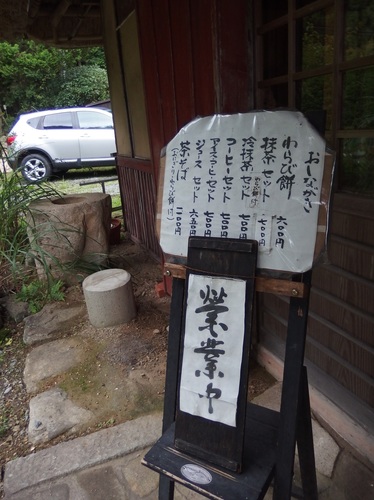 おしながき
わらび餅 六〇〇円
抹茶セット(わらび餅付) 七〇〇円
冷抹茶セット 七〇〇円
コーヒーセット 七〇〇円
アイスコーヒーセット 七〇〇円
ジュースセット 六五〇円
茶そば 一一〇〇円
營業中